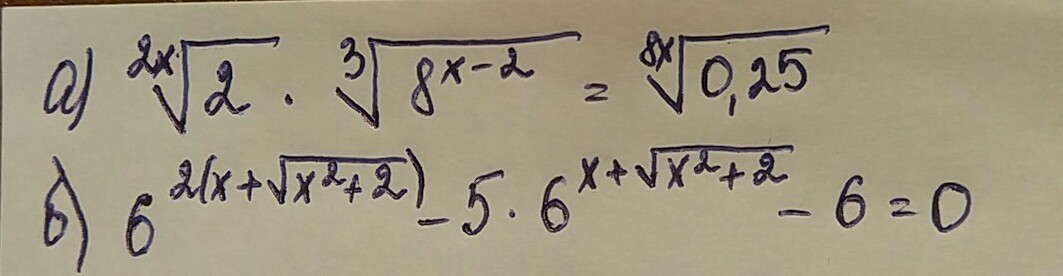 а) ²ˣ√2 · ³√(8ˣ⁻²) = ⁸ˣ√0,25
б) 6^(2(x+√(x²+2))) - 5 · 6^(x+√(x²+2)) - 6 = 0